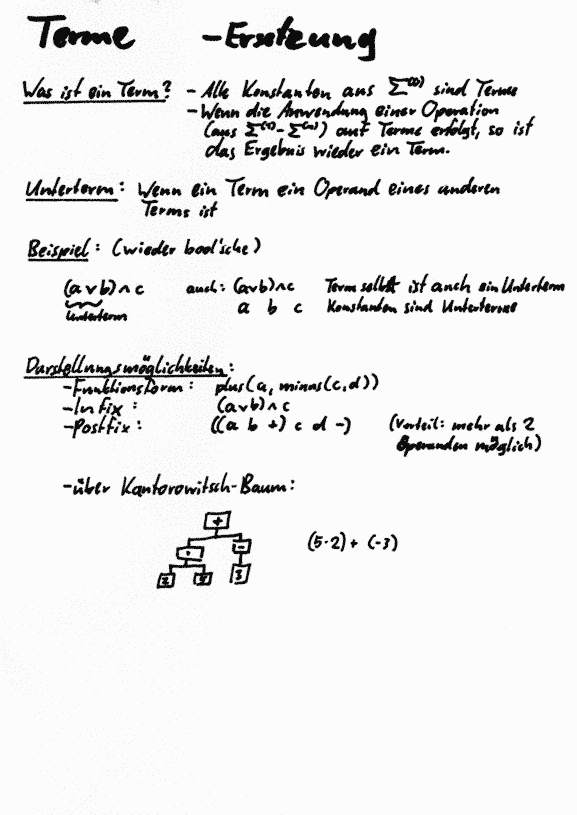 Terme -Ersetzung
Was ist ein Term? - Alle Konstanten aus Σ⁽⁰⁾ sind Terme
- Wenn die Anwendung einer Operation
(aus Σ⁽¹⁾- Σ⁽ⁿ⁾) auf Terme erfolgt, so ist
das Ergebnis wieder ein Term.
Unterterm: Wenn ein Term ein Operand eines anderen
Terms ist
Beispiel: (wieder bool'sche)
(a ∨ b) ∧ c auch: (a∨b)∧c Term selbst ist auch ein Unterterm
Unterterm a b c Konstanten sind Unterterme
Darstellungsmöglichkeiten:
-Funktionsform: plus(a, minus(c,d))
-Infix: (a∨b)∧c
-Postfix: ((a b +) c d -) (Vorteil: mehr als 2
Operanden möglich)
-über Kantorowitsch-Baum:
+
· -
2 5 3
(5·2) + (-3)